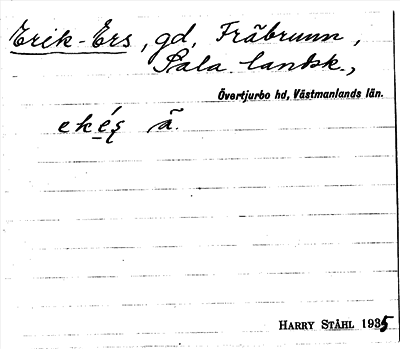 Erik-Ers, gd, Fräbrunn,
Sala landsk.,
Övertjurbo hd, Västmanlands län.
HARRY STÅHL 1935